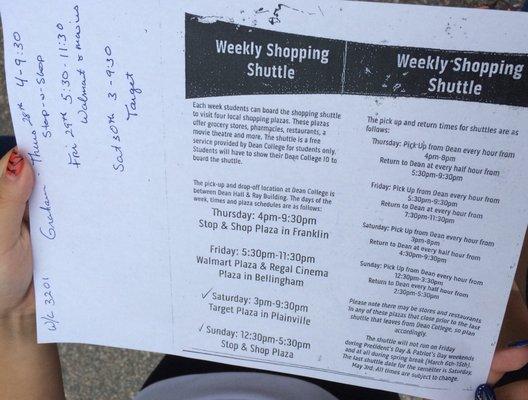 W/C 3201 Graham
Thurs 28th 4-9:30
Stop-n-Shop
Fri 29th 5:30-11:30
Walmart & movies
Sat 30th 3-9:30
Target
Weekly Shopping
Shuttle
Each week students can board the shopping shuttle
to visit four local shopping plazas. These plazas
offer grocery stores, pharmacies, restaurants, a
movie theatre and more. The shuttle is a free
service provided by Dean College for students only.
Students will have to show their Dean College ID to
board the shuttle.
The pick-up and drop-off location at Dean College is
between Dean Hall & Ray Building. The days of the
week, times and plaza schedules are as follows:
Thursday: 4pm-9:30pm
Stop & Shop Plaza in Franklin
Friday: 5:30pm-11:30pm
Walmart Plaza & Regal Cinema
Plaza in Bellingham
✓ Saturday: 3pm-9:30pm
Target Plaza in Plainville
✓ Sunday: 12:30pm-5:30pm
Stop & Shop Plaza
Weekly Shopping
Shuttle
The pick up and return times for shuttles are as
follows:
Thursday: Pick Up from Dean every hour from
4pm-8pm
Return to Dean at every half hour from
5:30pm-9:30pm
Friday: Pick Up from Dean every hour from
5:30pm-9:30pm
Return to Dean at every hour from
7:30pm-11:30pm
Saturday: Pick Up from Dean every hour from
3pm-8pm
Return to Dean at every half hour from
4:30pm-9:30pm
Sunday: Pick Up from Dean every hour from
12:30pm-3:30pm
Return to Dean at every half hour from
2:30pm-5:30pm
Please note there may be stores and restaurants
in any of these plazas that close prior to the last
shuttle that leaves from Dean College, so plan
accordingly.
The shuttle will not run on Friday
during President's Day & Patriot's Day weekends
and at all during spring break (March 6th-15th).
The last shuttle date for the semester is Saturday,
May 3rd. All times are subject to change.